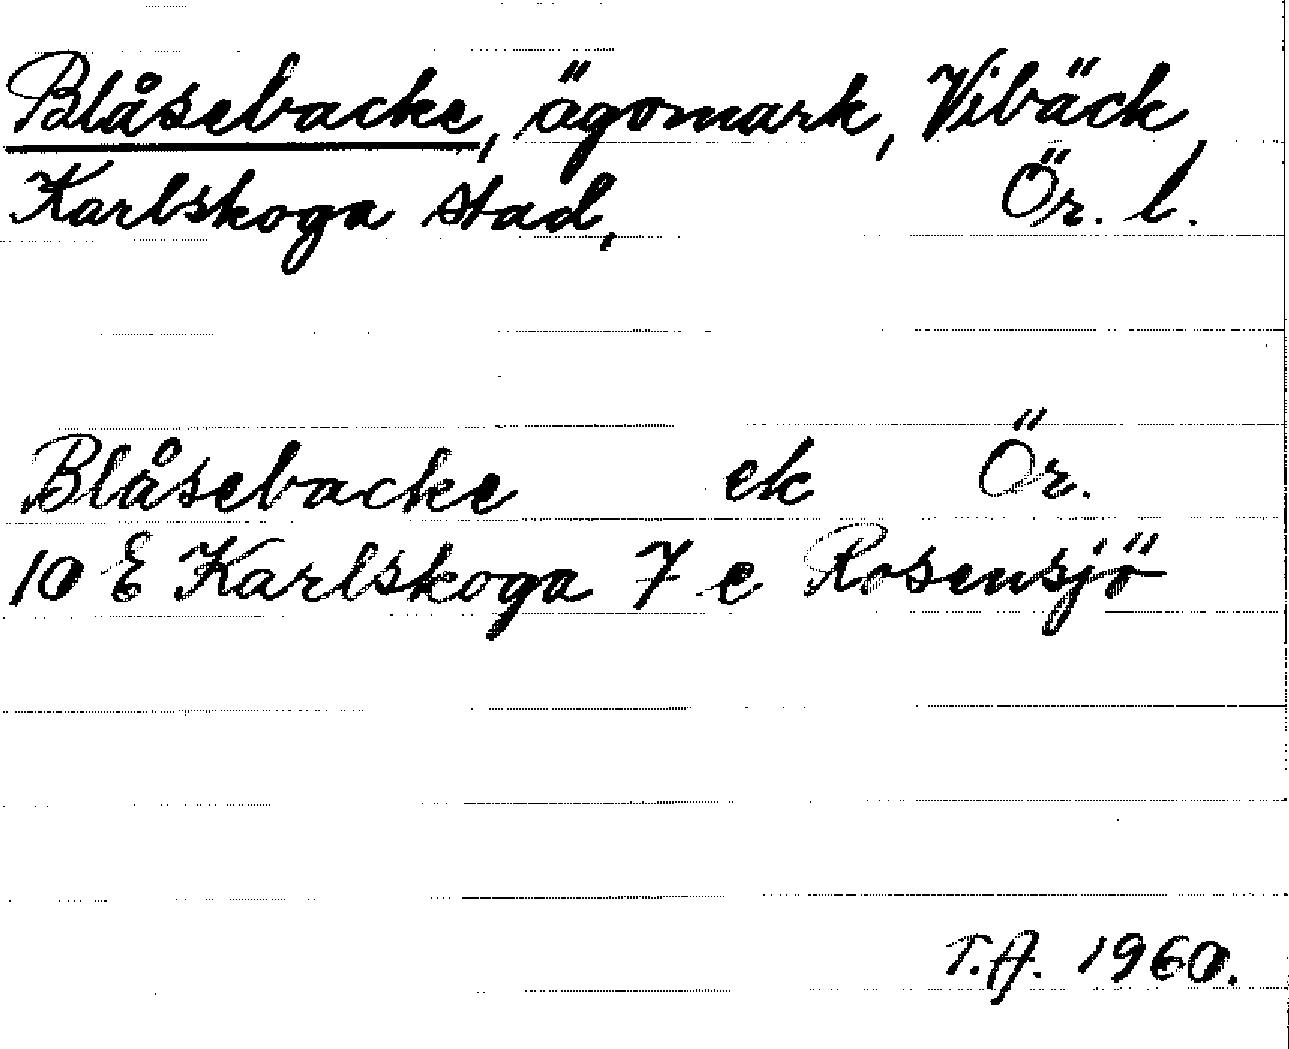 Blåsebacke, ägomark, Vibäck
Karlskoga stad, Ör. l.
Blåsebacke ek Ör.
10 E Karlskoga 7 e Rosensjö
T.A. 1960.